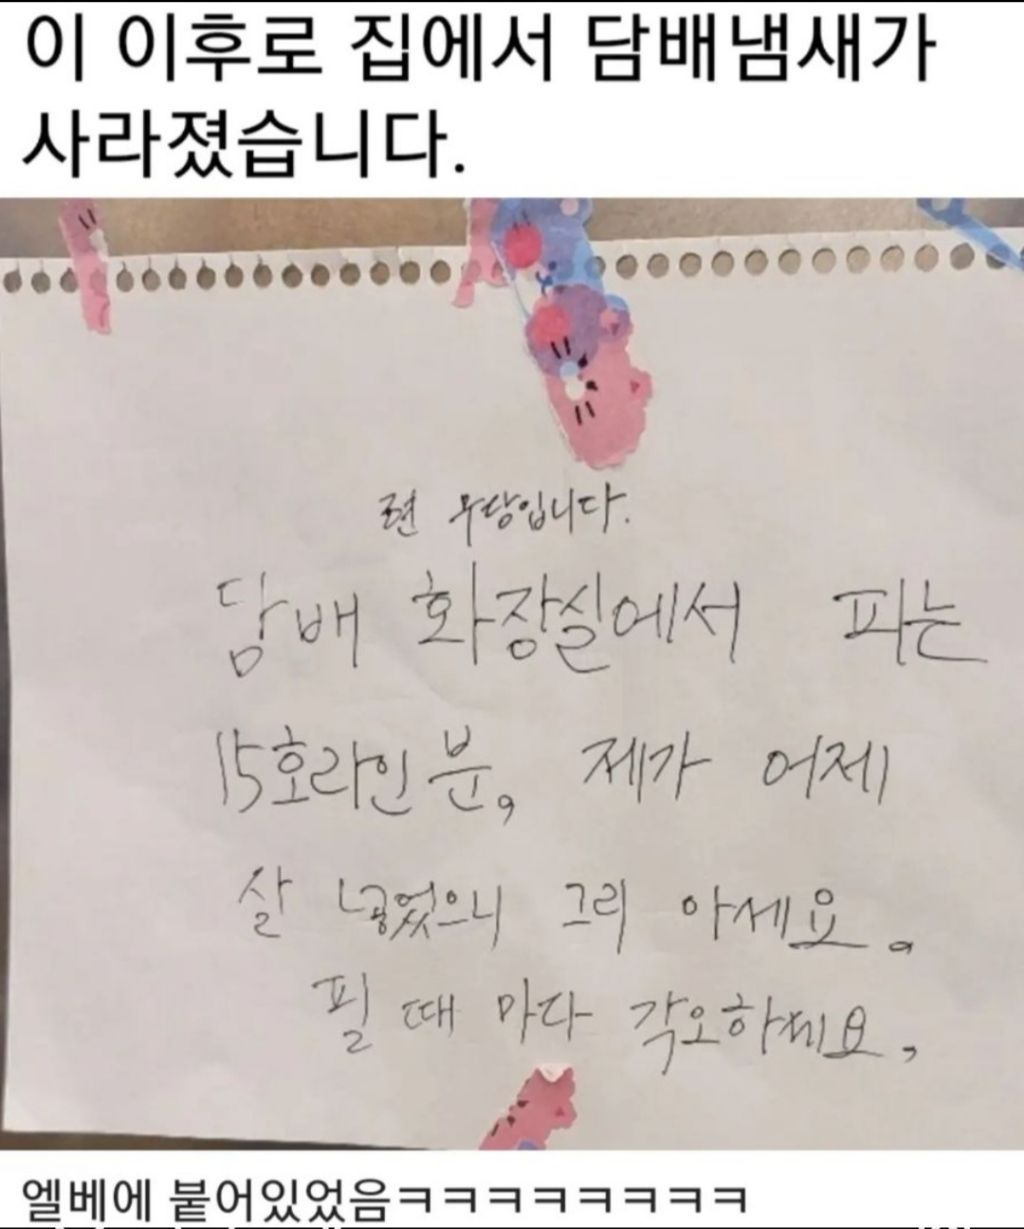 이 이후로 집에서 담배냄새가
사라졌습니다.
전 무당입니다.
담배 화장실에서 피는
15호라인 분, 제가 어제
살 넣었으니 그리 아세요.
필 때 마다 각오하세요,
엘베에 붙어있었음ㅋㅋㅋㅋㅋㅋㅋㅋ